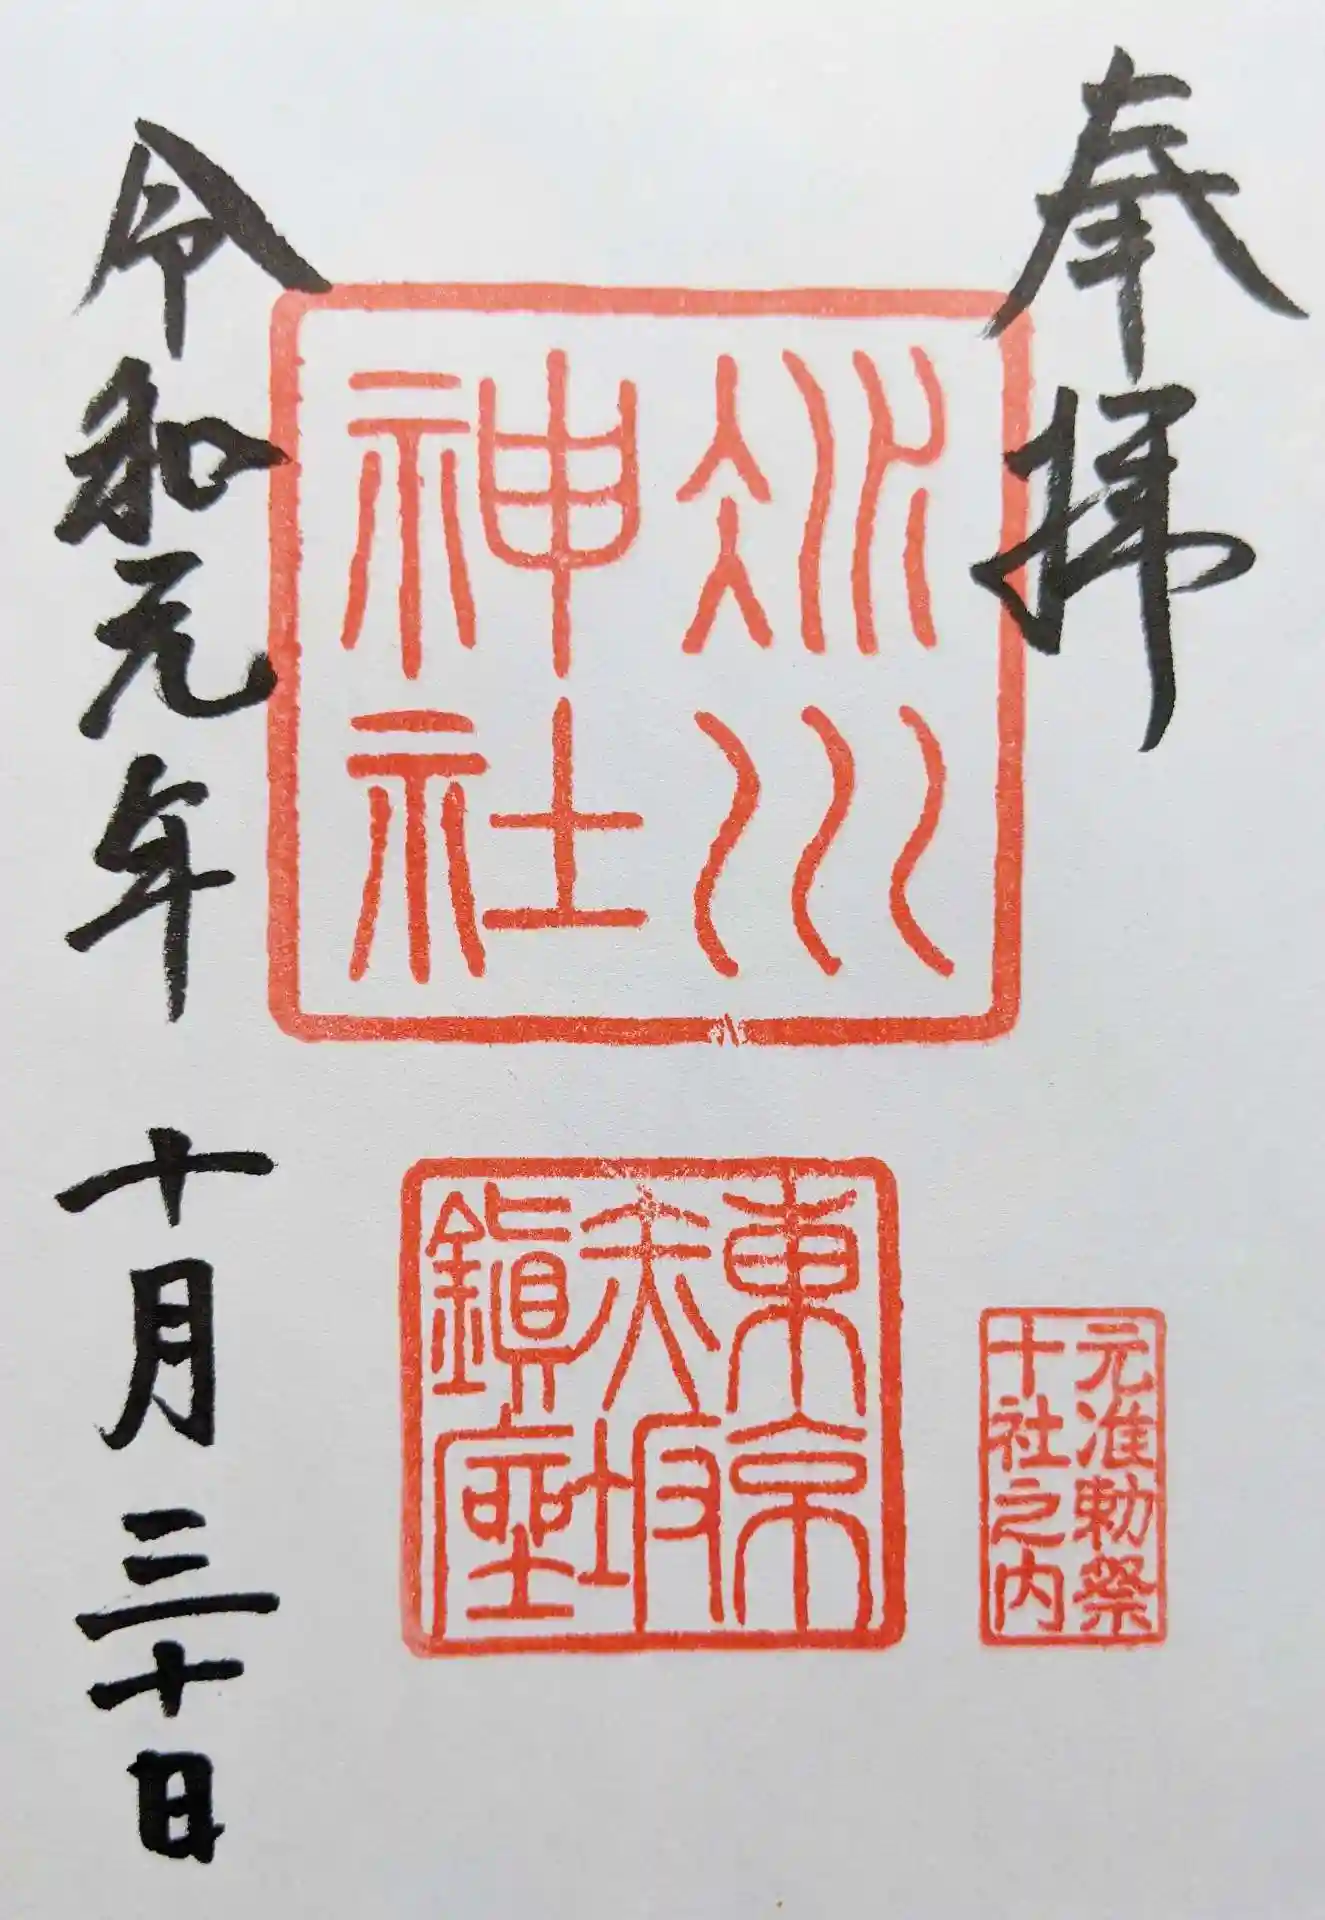 奉拝
氷川
神社
東京
赤坂
鎮座
元准勅祭
十社之内
令和元年十月三十日